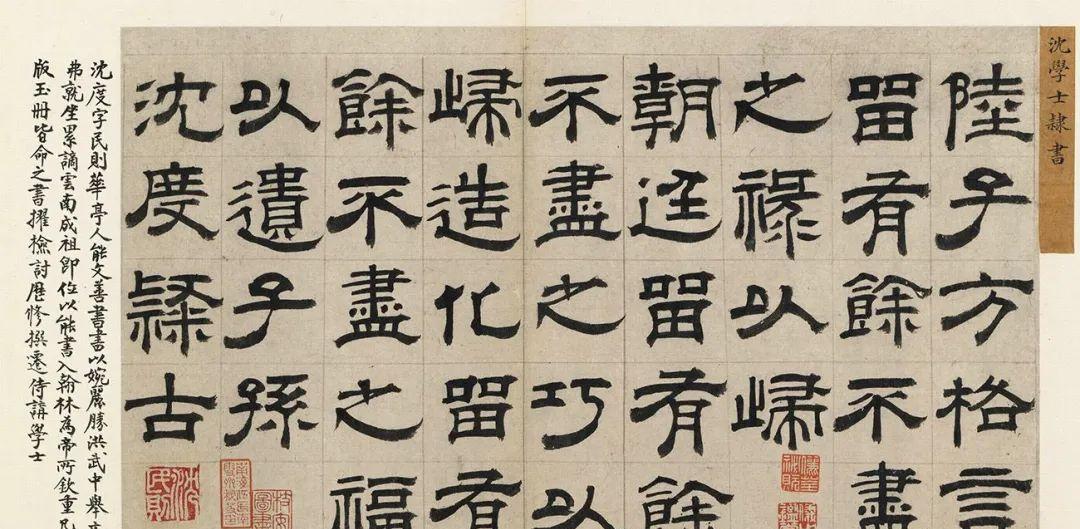 沈學士隸書
陸子方格言
留有餘不盡
之祿以歸
朝廷留有餘
不盡之巧以
歸造化留有
餘不盡之福
以遺子孫
沈度隸古
沈民則
沈度字民則華亭人能文善書書以婉麗勝洪武中舉
弗就坐累謫雲南成祖即位以能書入翰林為帝所欽重凡
版玉冊皆命之書擢檢討歷修撰遷侍講學士